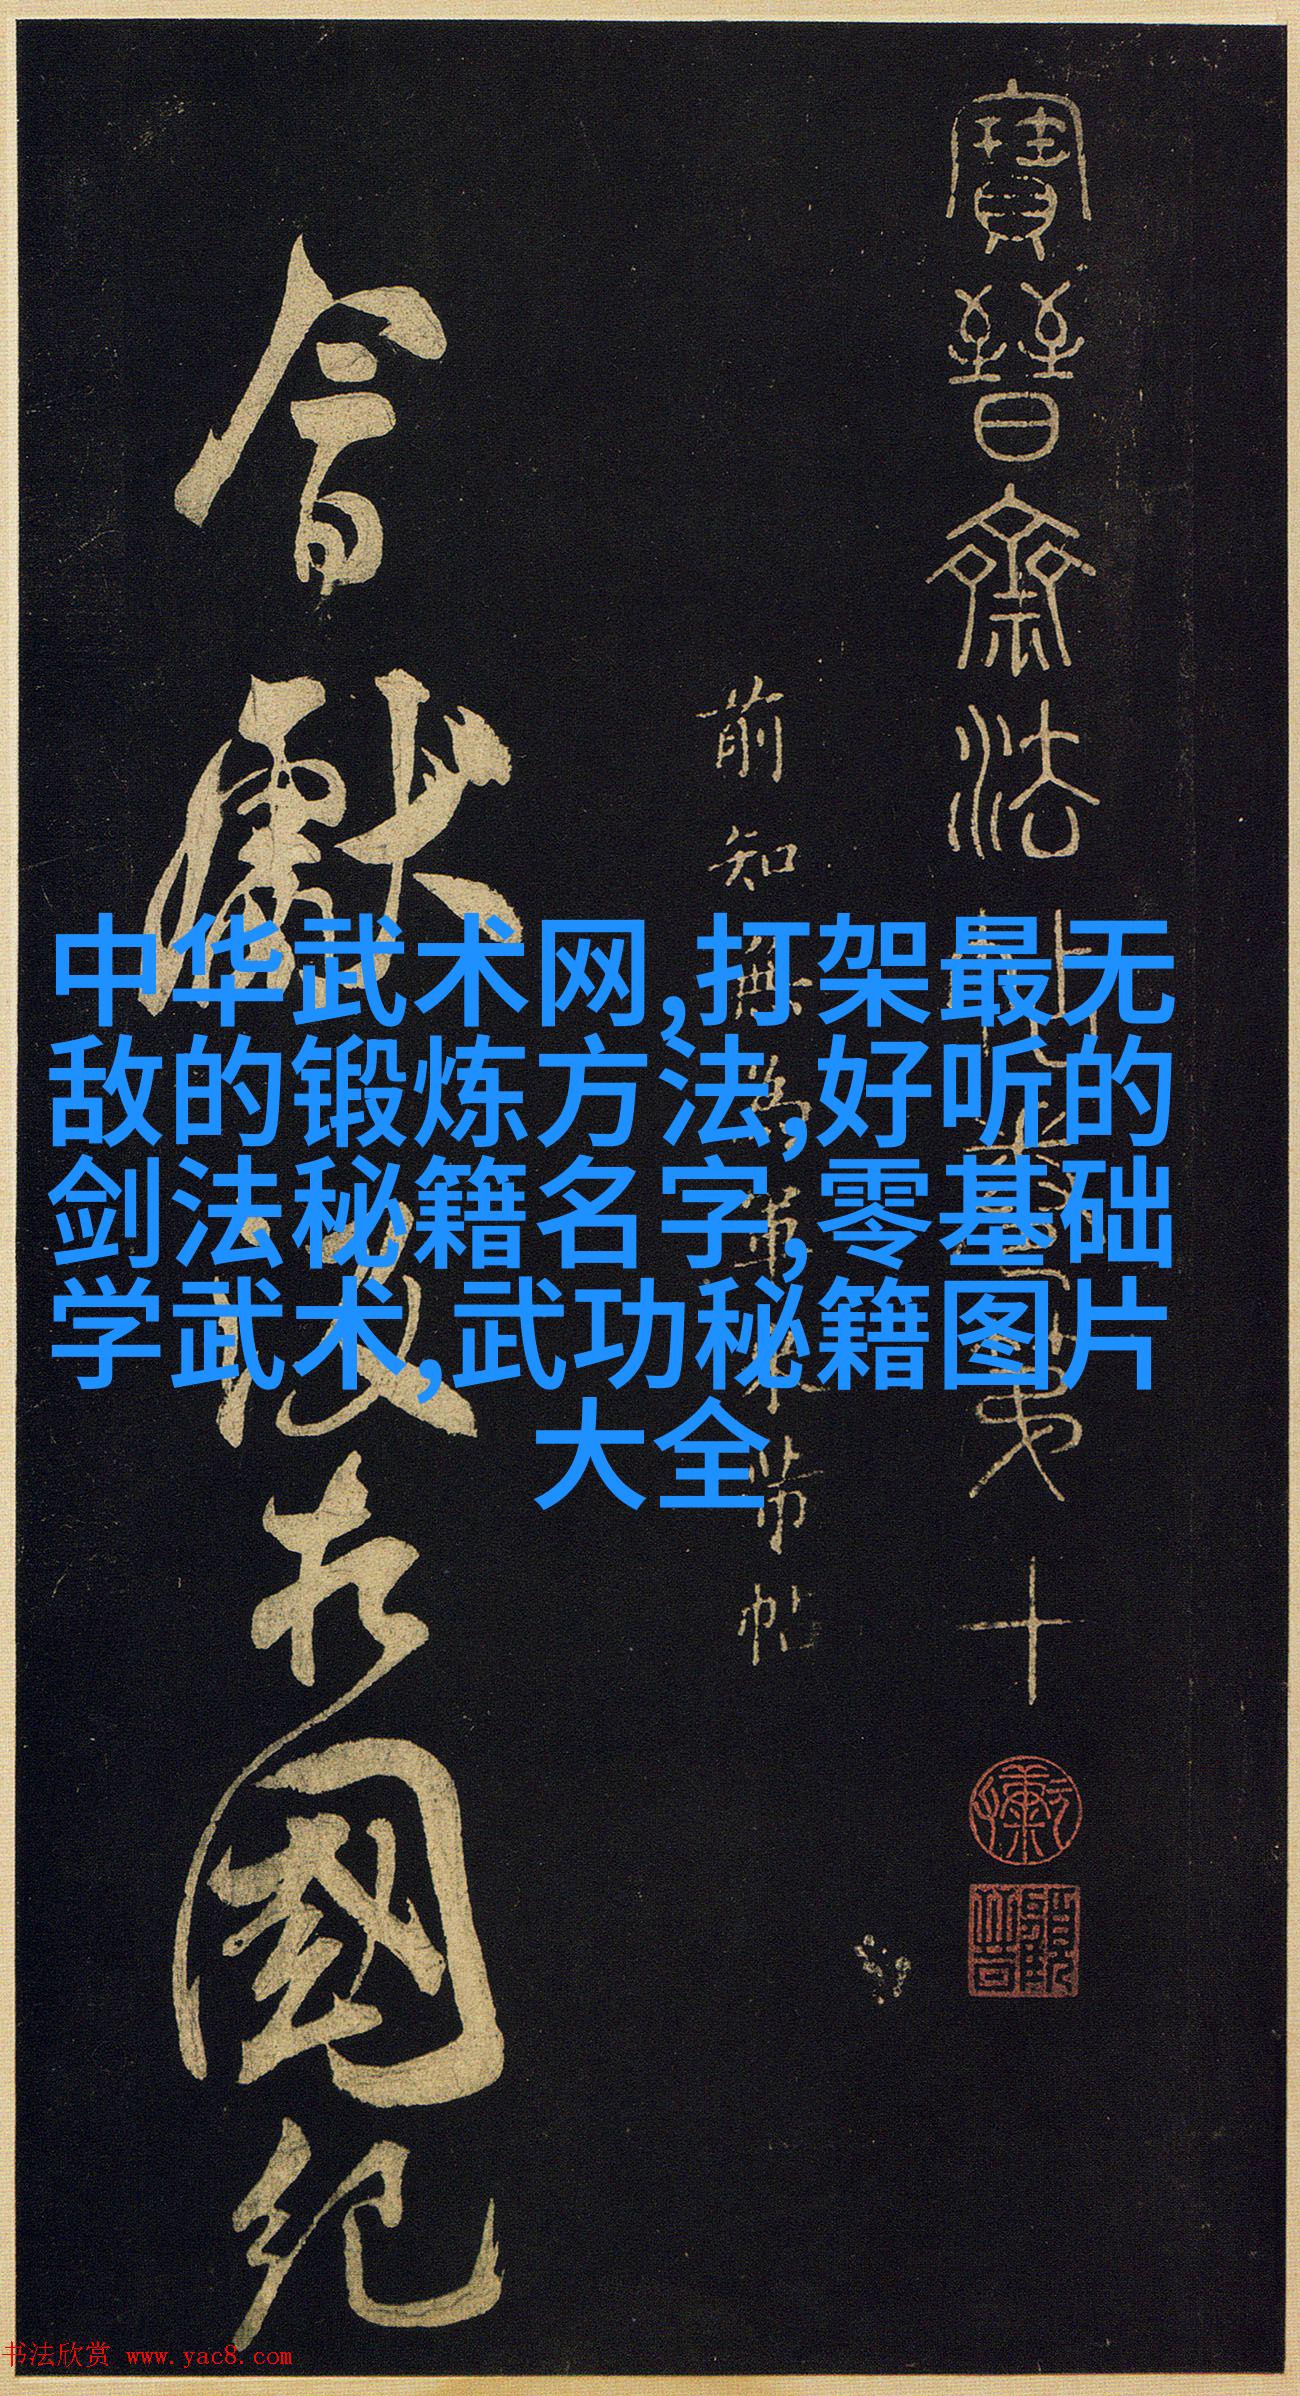 寶晉齋法帖卷第十
前知無為軍米芾帖
令獻
國紀
中华武术网,打架最无
敌的锻炼方法,好听的
剑法秘籍名字,零基础
学武术,武功秘籍图片
大全
书法欣赏 www.yac8.com